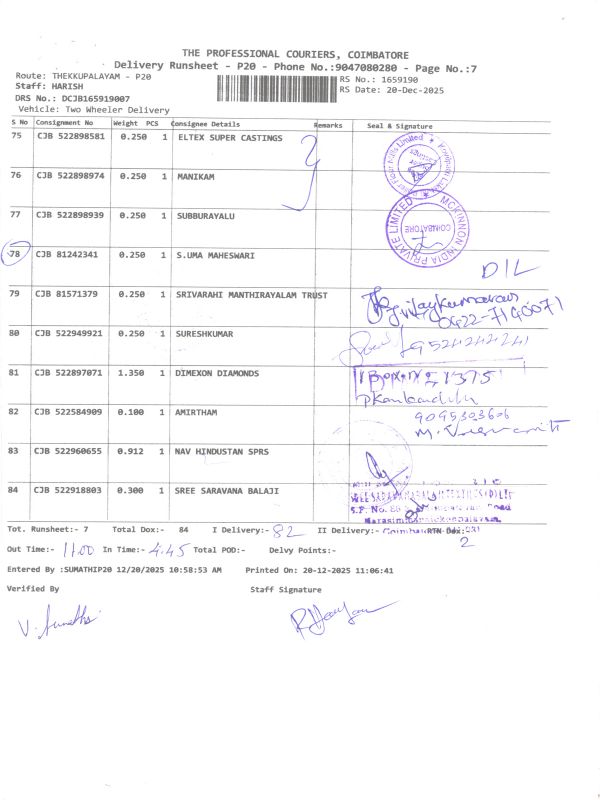 THE PROFESSIONAL COURIERS, COIMBATORE
Delivery Runsheet - P20 - Phone No.:9047080280 - Page No.:7
Route: THEKKUPALAYAM - P20
RS No.: 1659190
Staff: HARISH
RS Date: 20-Dec-2025
DRS No.: DCJB165919007
Vehicle: Two Wheeler Delivery
S No Consignment No Weight PCS Consignee Details Remarks Seal & Signature
75 CJB 522898581 0.250 1 ELTEX SUPER CASTINGS
76 CJB 522898974 0.250 1 MANIKAM
77 CJB 522898939 0.250 1 SUBBURAYALU
MCKINNON INDIA PRIVATE LIMITED
COIMBATORE
78 CJB 81242341 0.250 1 S.UMA MAHESWARI
D/L
79 CJB 81571379 0.250 1 SRIVARAHI MANTHIRAYALAM TRUST
0422-7140071
80 CJB 522949921 0.250 1 SURESHKUMAR
81 CJB 522897071 1.350 1 DIMEXON DIAMONDS
82 CJB 522584909 0.100 1 AMIRTHAM
9095303606
83 CJB 522960655 0.912 1 NAV HINDUSTAN SPRS
84 CJB 522918803 0.300 1 SREE SARAVANA BALAJI
Tot. Runsheet:- 7 Total Dox:- 84 I Delivery:- 82 II Delivery:- RTN Dox:- 2
Out Time:- 11.00 In Time:- 4.45 Total POD:- Delvy Points:-
Entered By :SUMATHIP20 12/20/2025 10:58:53 AM Printed On: 20-12-2025 11:06:41
Verified By Staff Signature